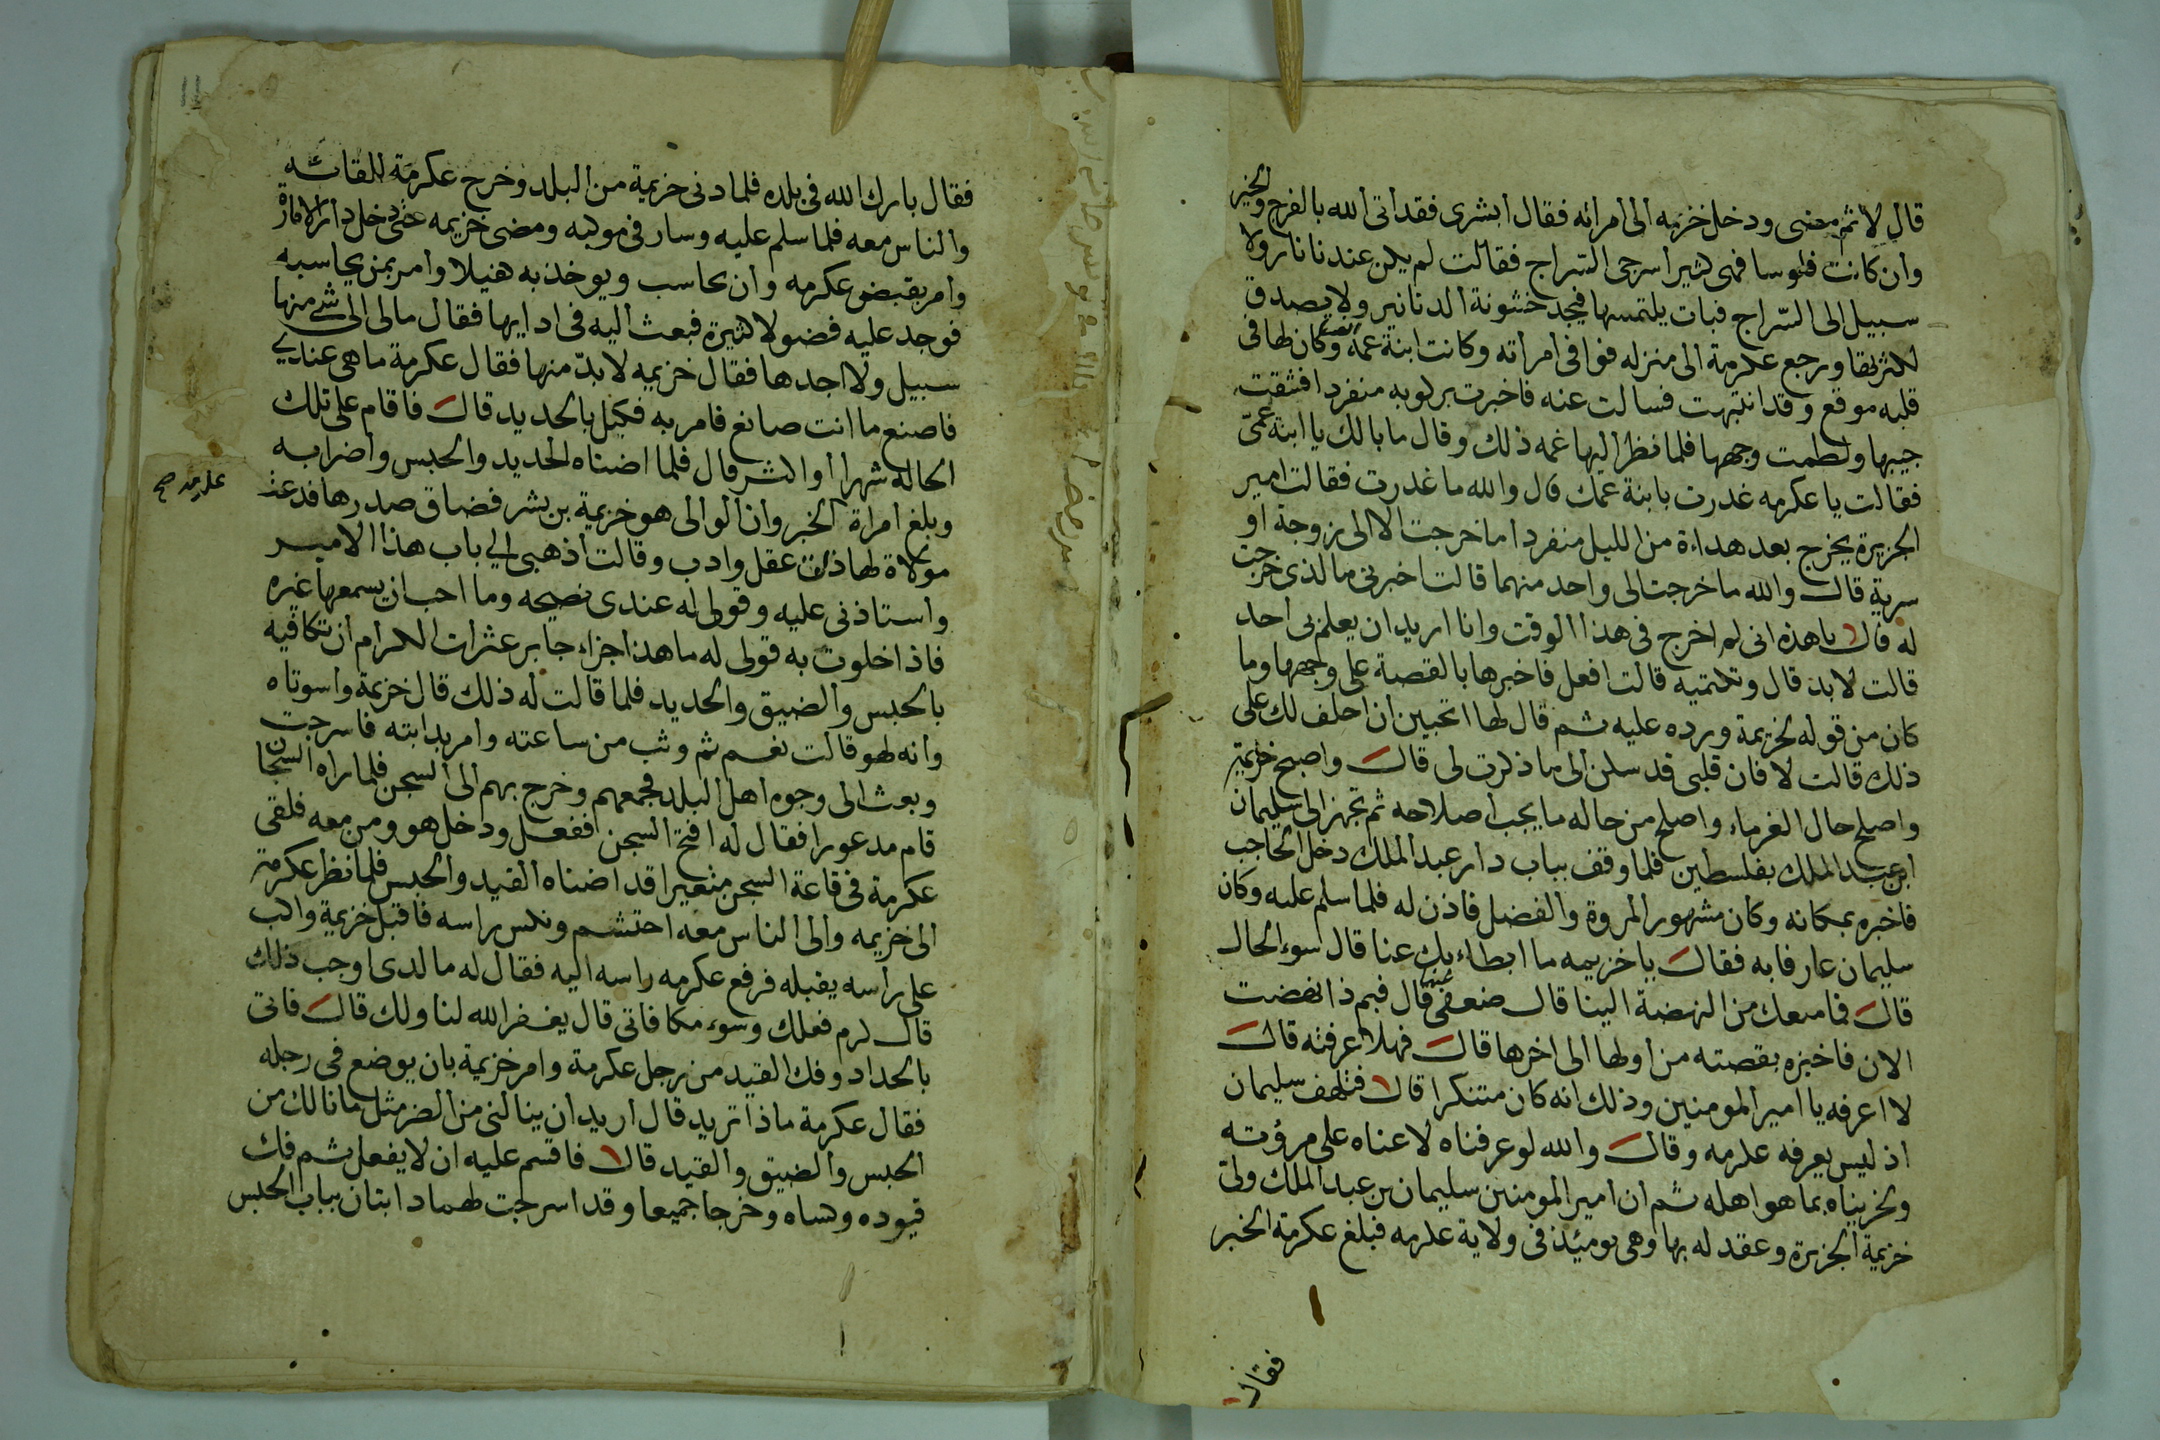 قال لا ثم مضى ودخل خزيمه الى امراته فقال ابشرى فقد اتى الله بالفرج والخير
وان كانت فلوسا فهى كثير اسرجى السراج فقالت لم يكن عندنا نار ولا
سبيل الى السّراج فبات يلتمسها فيجد خشونة الدنانير ولا يصدق
ورجع عكرمة الى منزله فوافى امراته وكانت ابنة عمه وكان لها فى
قلبه موقع وقد انتبهت فسالت عنه فاخبرت بركوبه منفردا فشقت
جيبها ولطمت وجهها فلما نظر اليها غمه ذلك وقال ما بالك يا ابنة عمّى
فقالت يا عكرمه غدرت بابنة عمك قال والله ما غدرت فقالت امير
الجزيرة يخرج بعد هداءة من الليل منفردا ما خرجت الا الى زوجة او
سرية قال والله ما خرجت الى واحد منهما قالت اخبرنى ما الذى خرجت
له قال يا هذه انى لم اخرج فى هذا الوقت وانا اريد ان يعلم بى احد
قالت لا بد قال وتكتميه قالت افعل فاخبرها بالقصة على وجهها وما
كان من قوله لخزيمة ورده عليه ثم قال لها اتحبين ان احلف لك على
ذلك قالت لا فان قلبى قد سكن الى ما ذكرت لى قال واصبح خزيمة
واصلح حال الغرماء واصلح من حاله ما يجب اصلاحه ثم تجهز الى سليمان
ابن عبد الملك بفلسطين فلما وقف بباب دار عبد الملك دخل الحاجب
فاخبره بمكانه وكان مشهور المروة والفضل فاذن له فلما سلم عليه وكان
سليمان عارفا به فقال يا خزيمه ما ابطاء بك عنا قال سوء الحال
قال فما منعك من النهضة الينا قال ضعفى قال فبم ذا نهضت
الان فاخبره بقصته من اولها الى اخرها قال فهلا عرفته قال
لا اعرفه يا امير المومنين وذلك انه كان متنكرا قال فتلهف سليمان
اذ ليس يعرفه عكرمه وقال والله لو عرفناه لاعناه على مرؤته
ولجزيناه بما هو اهله ثم ان امير المومنين سليمان بن عبد الملك ولّى
خزيمة الجزيرة وعقد له بها وهى يوميئذ فى ولاية عكرمه فبلغ عكرمة الخبر
فقال
١١
فقال بارك الله فى بلده فلما دنى خزيمة من البلد وخرج عكرمة للقائه
والناس معه فلما سلم عليه وسار فى موكبه ومضى خزيمه حتى دخل دار الامارة
وامر بقبض عكرمه وان يحاسب ويوخذ به هنيلا وامر بمن يحاسبه
فوجد عليه فضولا كثيرة فبعث اليه فى ادايها فقال مالى الى شئ منها
سبيل ولا اجدها فقال خزيمه لا بدّ منها فقال عكرمة ما هى عندى
فاصنع ما انت صانع فامر به فكبل بالحديد قال فاقام على تلك
الحالة شهرا او اكثر قال فلما اضناه الحديد والحبس واضرا به
عكرمه صح
وبلغ امراة الخبر وان الوالى هو خزيمة بن بشر فضاق صدرها فدعت
مولاة لها ذات عقل وادب وقالت اذهبى الى باب هذا الامير
واستاذنى عليه وقولى له عندى نصيحه وما احب ان يسمعها غيره
فاذا خلوت به قولى له ما هذا جزاء جابر عثرات الكرام ان تكافيه
بالحبس والضيق والحديد فلما قالت له ذلك قال خزيمة واسوتاه
وانه لهو قالت نعم ثم وثب من ساعته وامر بدابته فاسرجت
وبعث الى وجوه اهل البلد فجمعهم وخرج بهم الى السجن فلما راه السجان
قام مدعورا فقال له افتح السجن ففعل ودخل هو ومن معه فلقى
عكرمة فى قاعة السجن متغيرا قد اضناه القيد والحبس فلما نظر عكرمة
الى خزيمه والى الناس معه احتشم ونكس راسه فاقبل خزيمة واكب
على راسه يقبله فرفع عكرمه راسه اليه فقال له ما لدى اوجب ذلك
قال كرم فعلك وسوء مكافاتى قال يغفر الله لنا ولك قال فاتى
بالحداد وفك القيد من رجل عكرمة وامر خزيمة بان يوضع فى رجله
فقال عكرمة ماذا تريد قال اريد ان ينالنى من الضر مثل ما نالك من
الحبس والضيق والقيد قال فاقسم عليه ان لا يفعل ثم فك
قيوده وكساه وخرجا جميعا وقد اسرجت لهما دابتان بباب الحبس